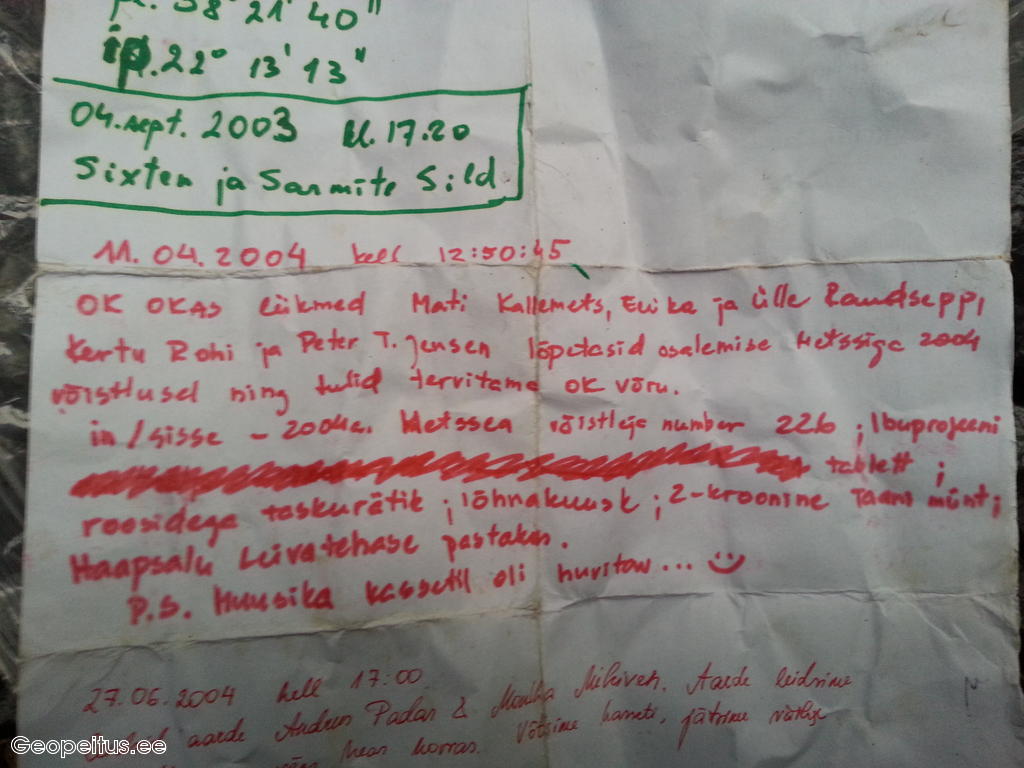 pl. 58° 21' 40"
ip. 22° 13' 13"
04.sept. 2003 kl. 17.20
Sixten ja Sarmite Sild
11.04.2004 kell 12:50:45
OK OKAS liikmed Mati Kallemets, Evika ja Ülle Raudsepp,
Kertu Rohi ja Peter T. Jensen lõpetasid osalemise Metssiga 2004
võistlusel ning tulid tervitama OK võru.
in/sisse - 2004a. Metssea võistleja number 226 ; Ibuprojeeni
tablett ;
roosidega taskurätik ; lõhnakuusk ; 2-kroonine Taani münt ;
Haapsalu Leivatehase pastakas.
P.S. Muusika kassetil oli hurstav... :)
27.06.2004 kell 17:00
aarde Andrus Padar & Monika Aarde leidsime
heas korras. Võtsime kasseti, jätsime
Geopeitus.ee